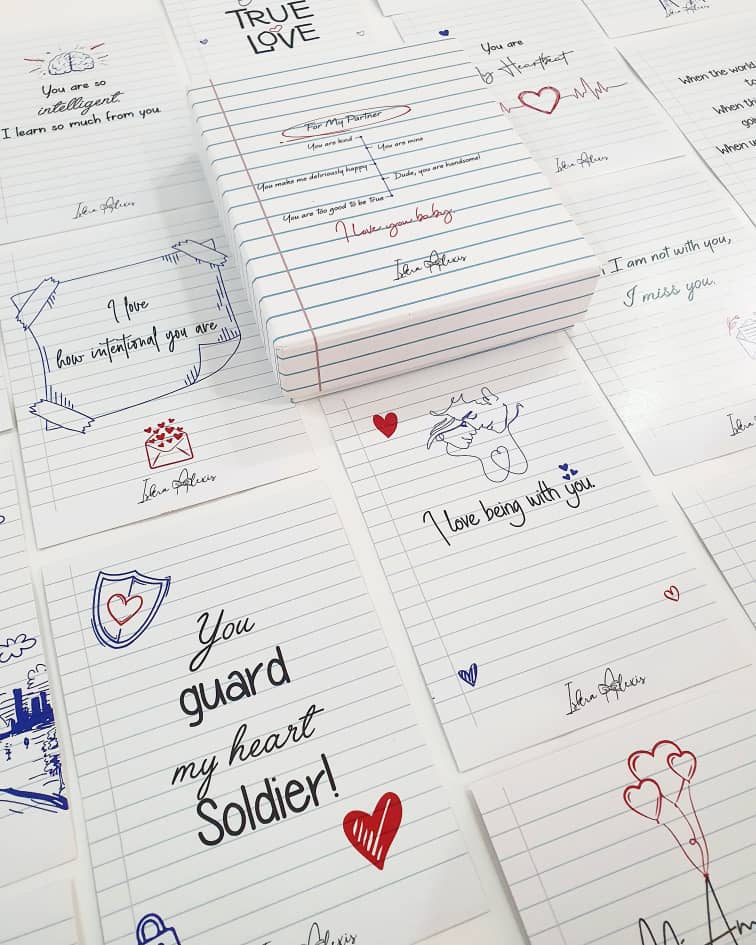 TRUE
LOVE
You are so
intelligent.
I learn so much from you
Idera Alexis
For My Partner
You are kind
You are mine
You make me deliriously happy
Dude, you are handsome!
You are too good to be True
I love you baby
Idera Alexis
You are
my Heartbeat
Idera Alexis
When the world
When th
goin
When u
I am not with you,
I miss you.
I love
how intentional you are
Idera Alexis
I love being with you.
Idera Alexis
You
guard
my heart
Soldier!